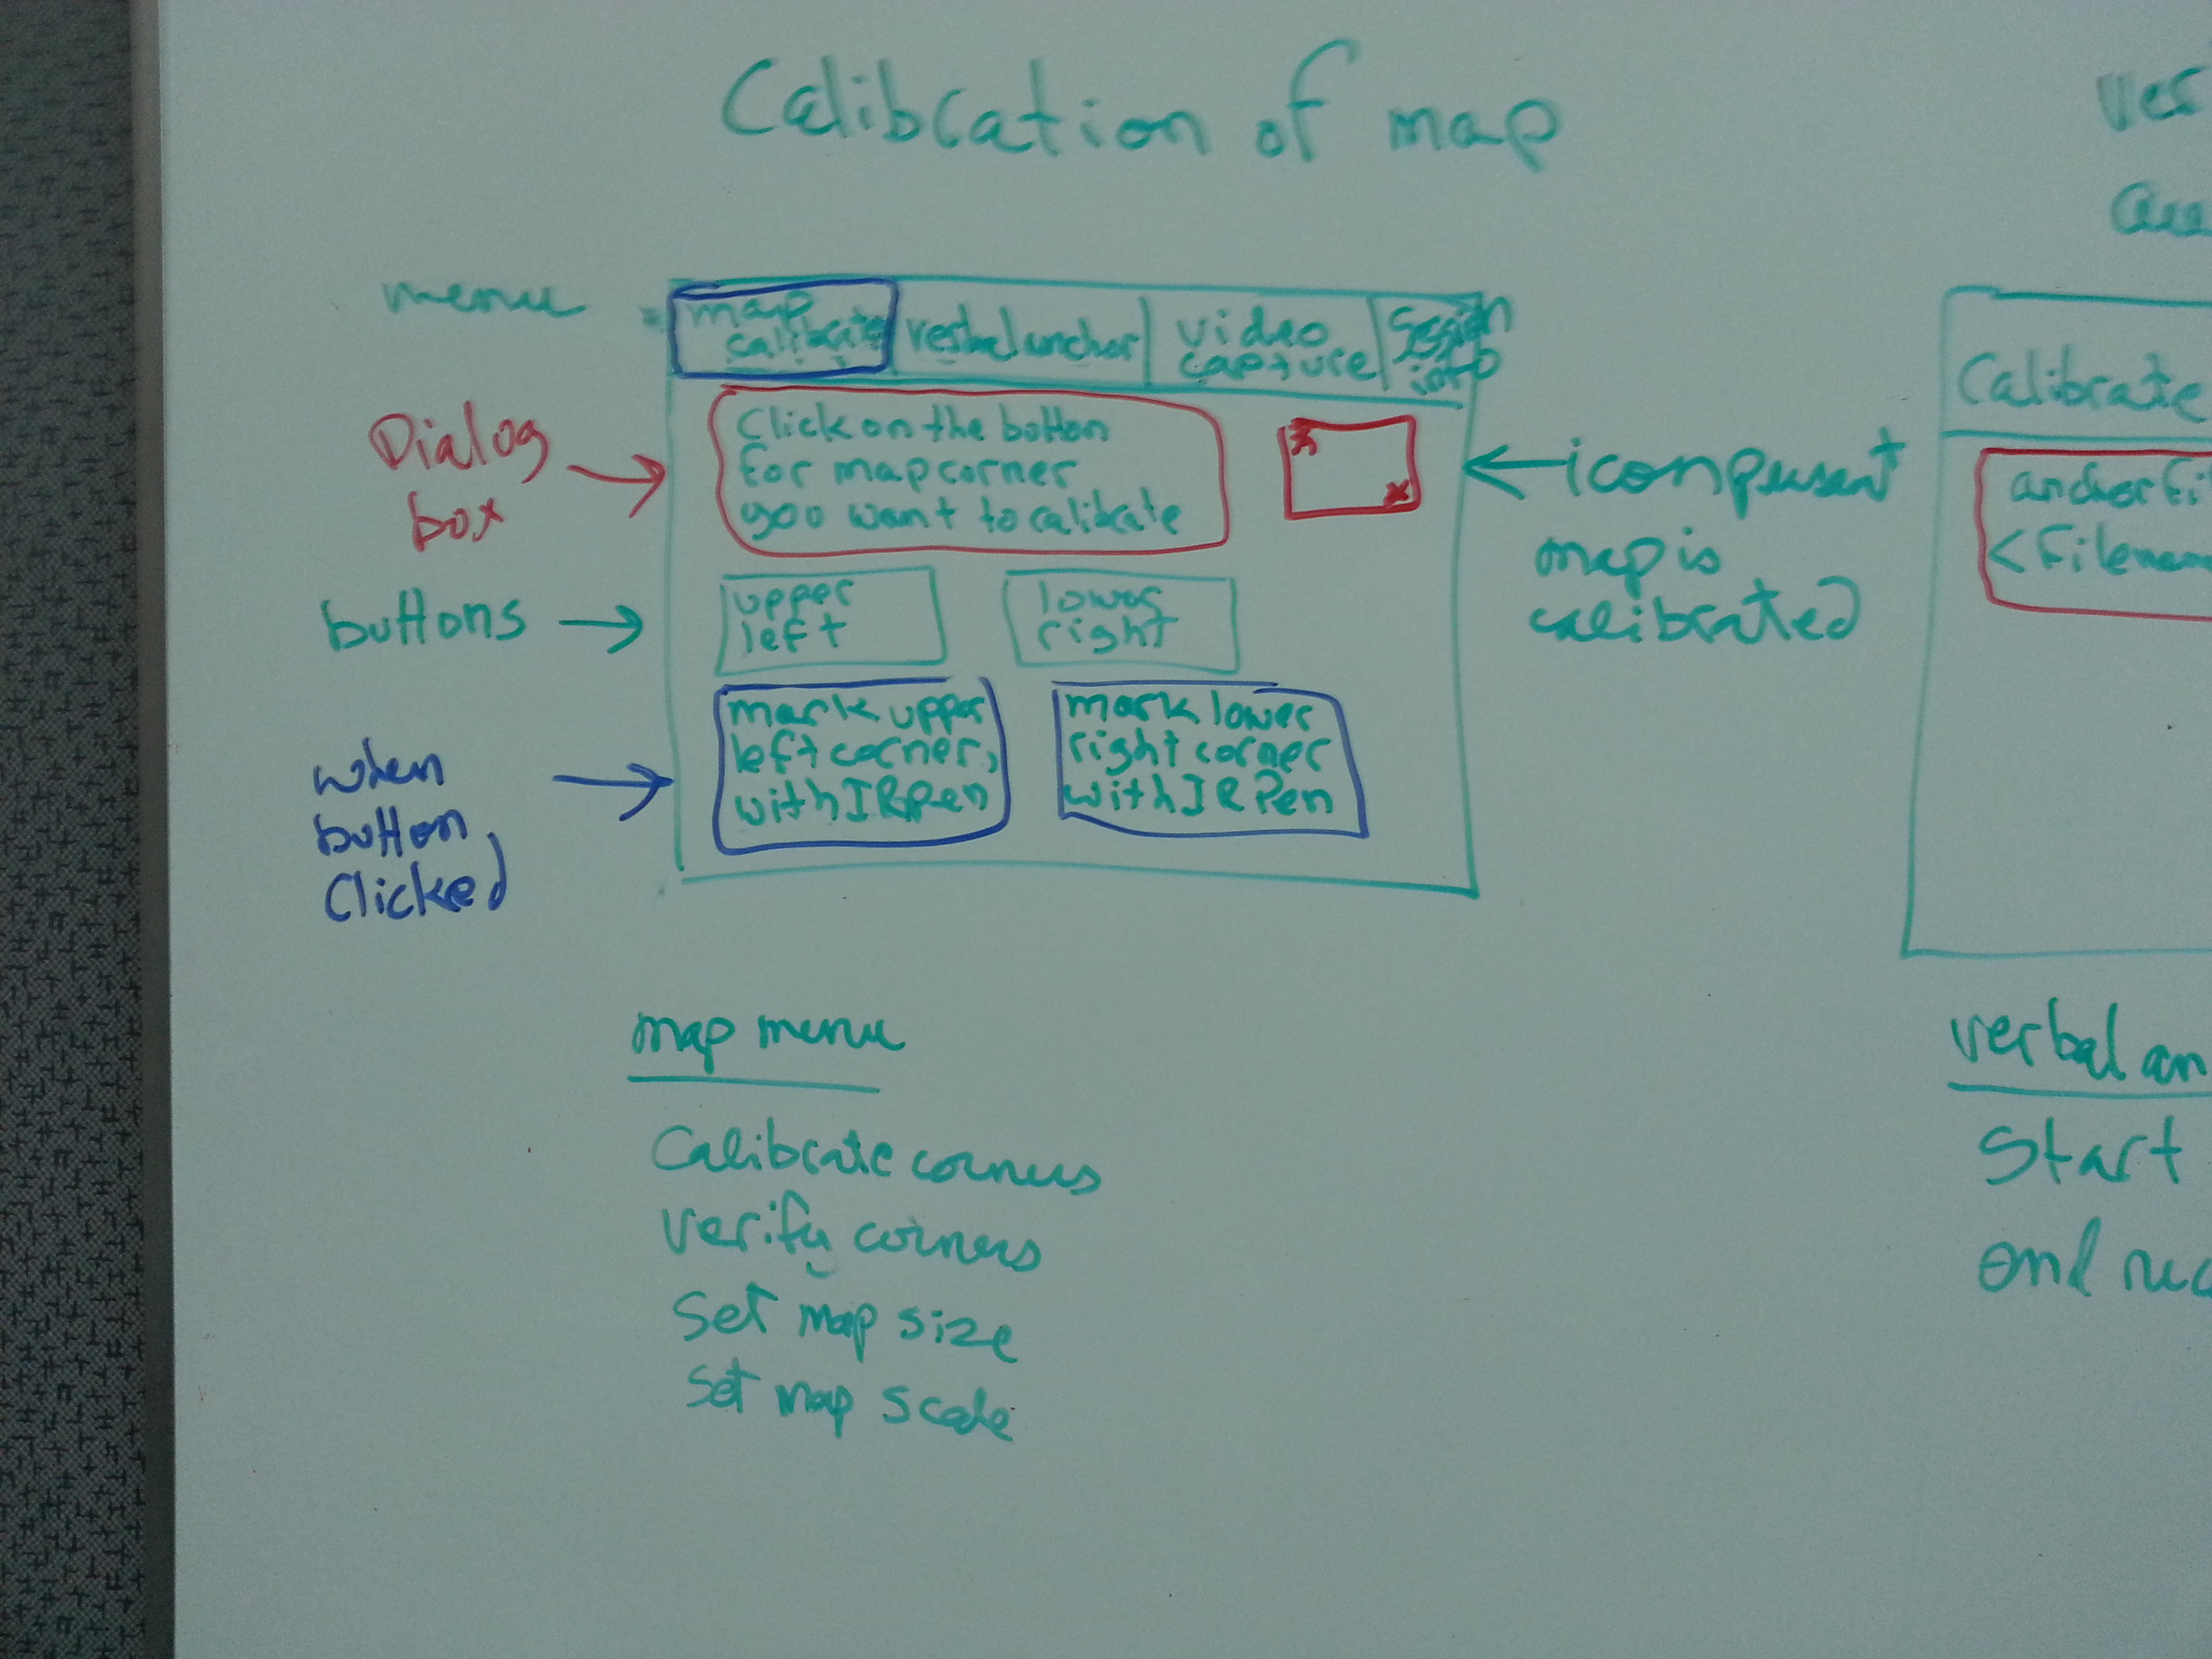 Calibration of map
menu
map
calibrate
verbal anchor
video
capture
Session
info
Dialog
box
Click on the button
for map corner
you want to calibrate
icon present
map is
calibrated
buttons
upper
left
lower
right
when
button
Clicked
mark upper
left corner,
with IR Pen
mark lower
right corner
with IR Pen
map menu
Calibrate corners
verify corners
Set map size
Set map scale
Calibrate
anchor fil
<Filenam
verbal an
Start
end rec